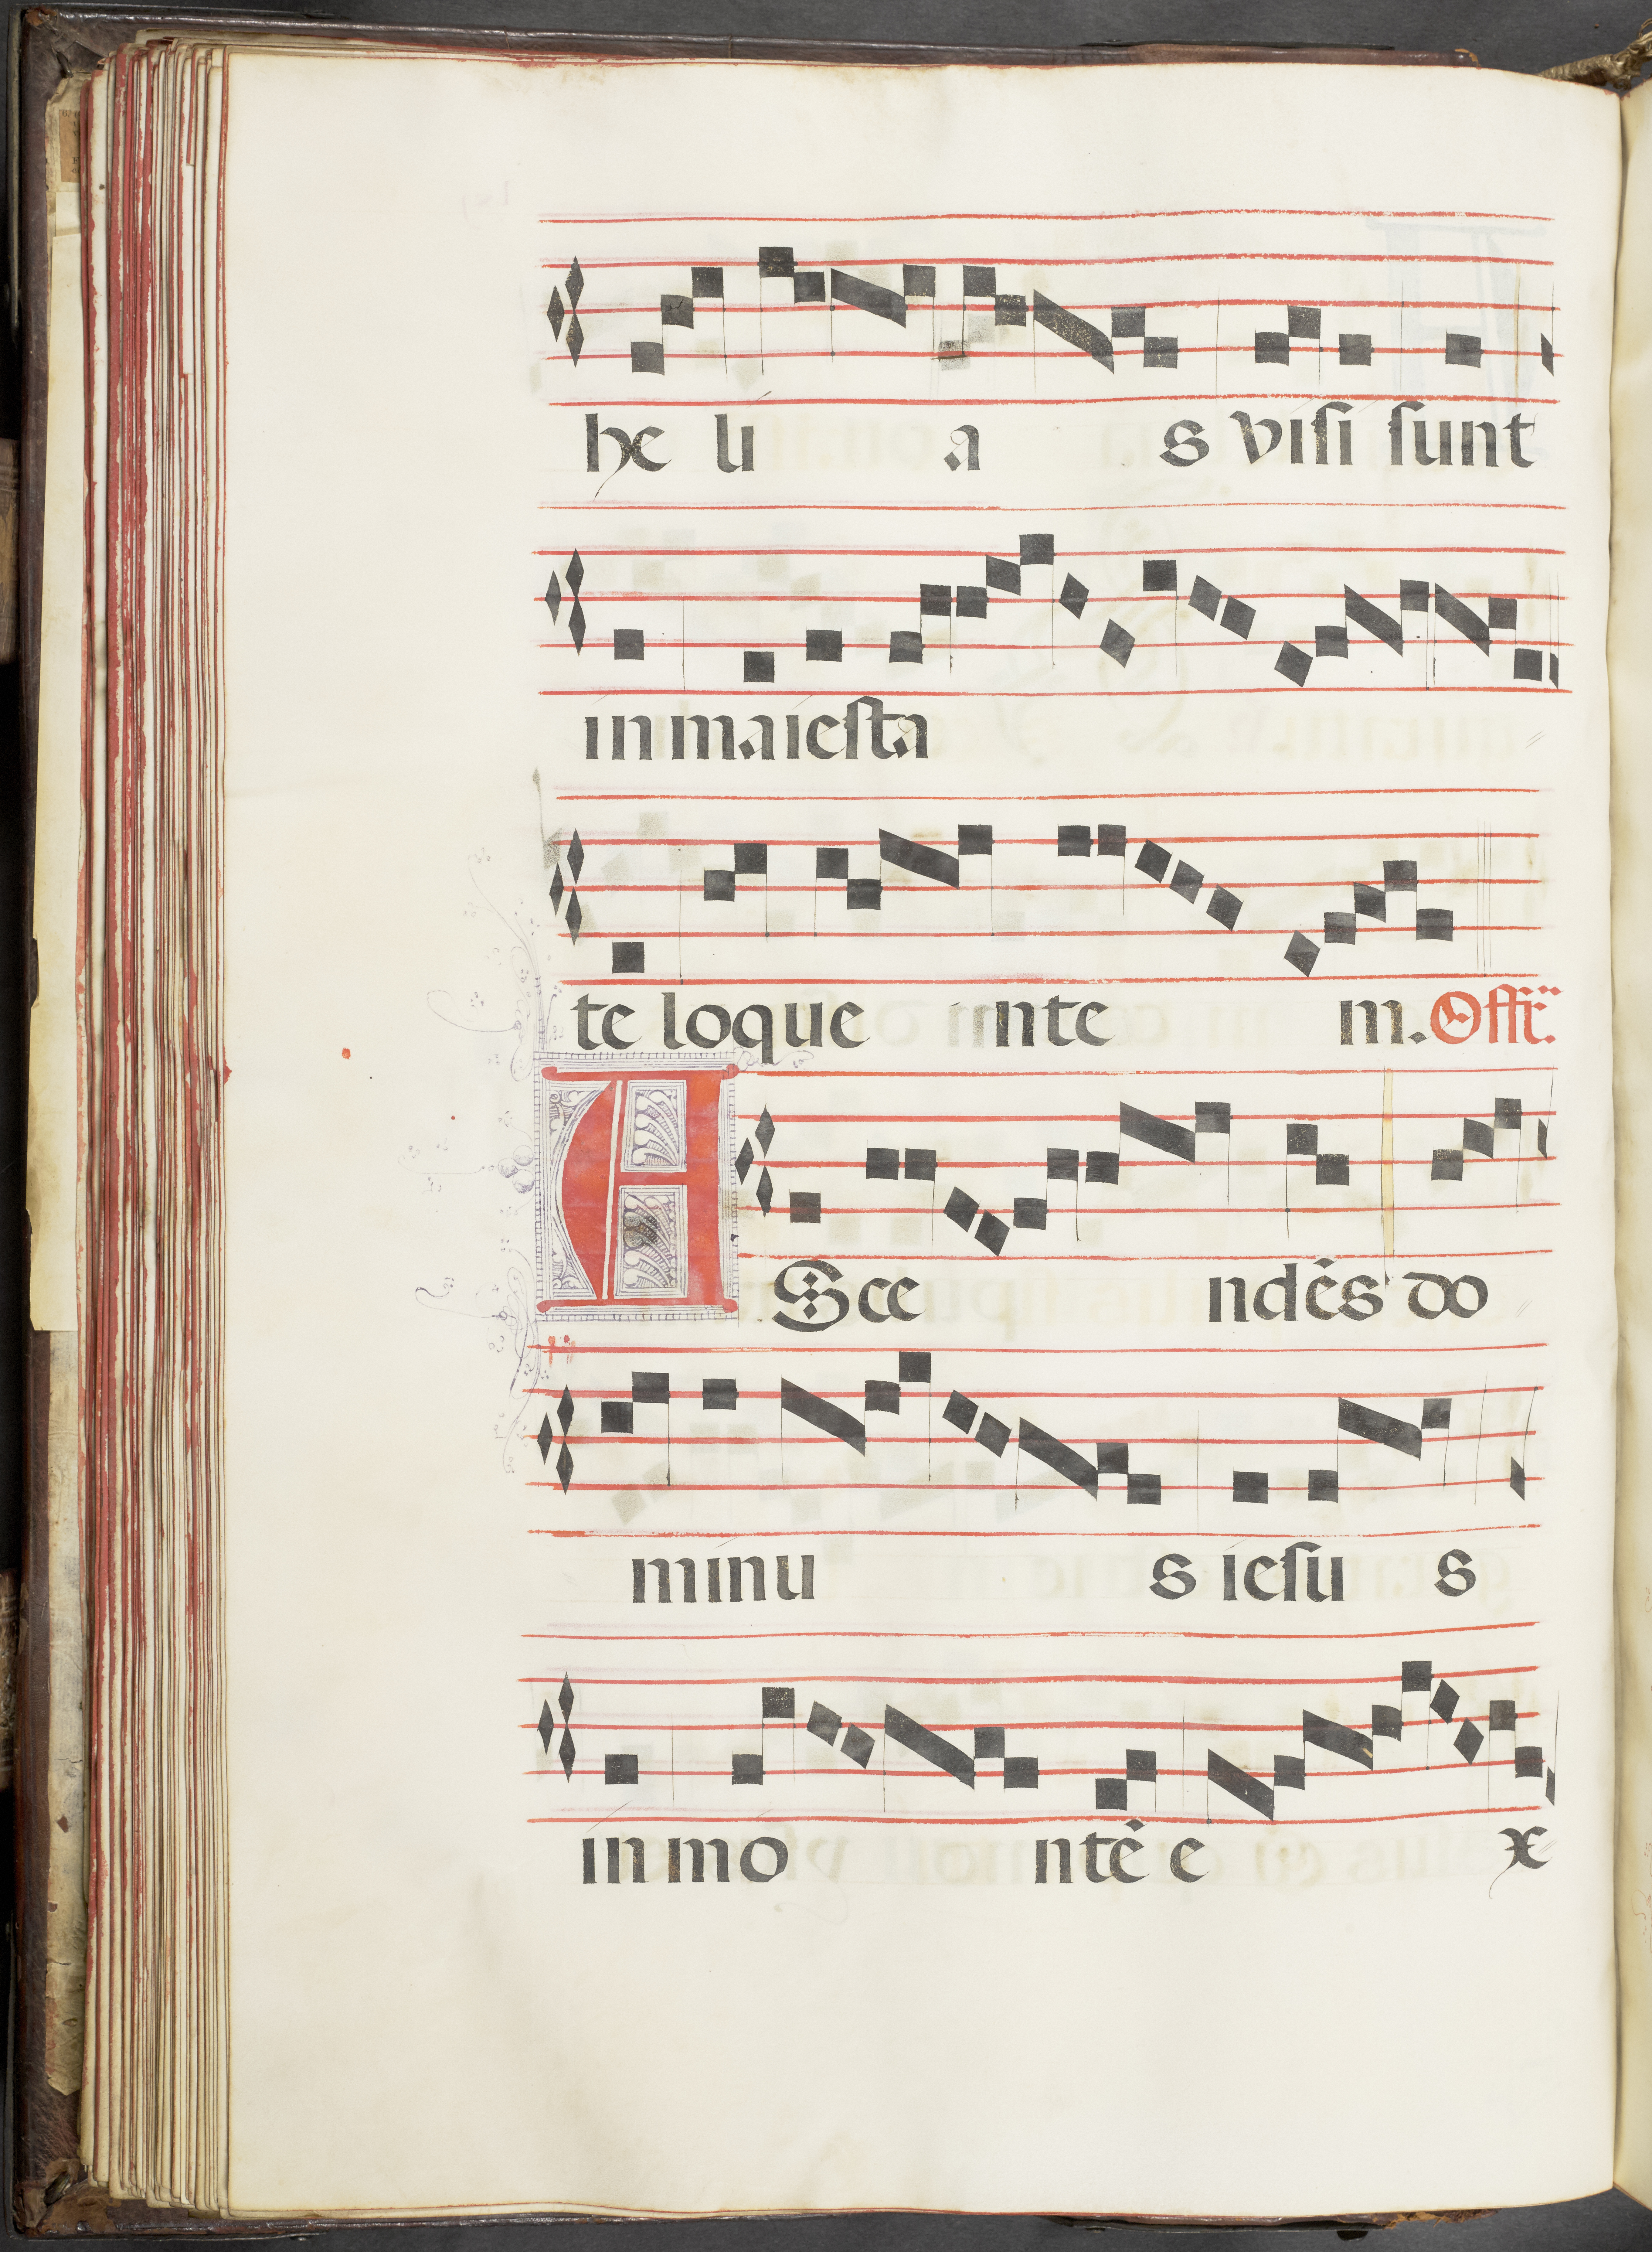 he li a s viſi ſunt
in maieſta
te loque inte m. Offr̃.
ASce ndēs do
minu s ieſu s
in mo ntē e x